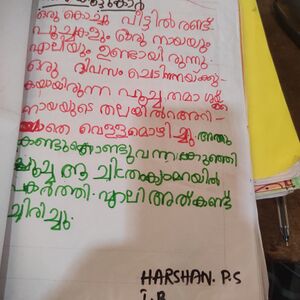 ഒരു കൊച്ചു വീട്ടിൽ രണ്ട്
പൂച്ചകളും ഒരു നായയും
എലിയും ഉണ്ടായി രുന്നു.
ഒരു ദിവസം ചെടിനനയ്ക്കു-
കയായിരുന്ന പൂച്ച
നായയുടെ തലയിൽ അറി-
യാതെ വെള്ളമൊഴിച്ചു അതു
കണ്ടുകൊണ്ടുവന്ന കുഞ്ഞി
പ്പൂച്ച ആ ചിത്രം ക്യാമറയിൽ
പകർത്തി. എലി അത് കണ്ട്
ചിരിച്ചു.
HARSHAN. P.S
I. B